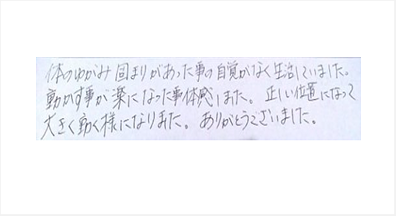 体のゆがみ 固まりがあった事の自覚がなく生活していました。
動かす事が楽になった事体感しました。 正しい位置になって
大きく動く様になりました。 ありがとうございました。